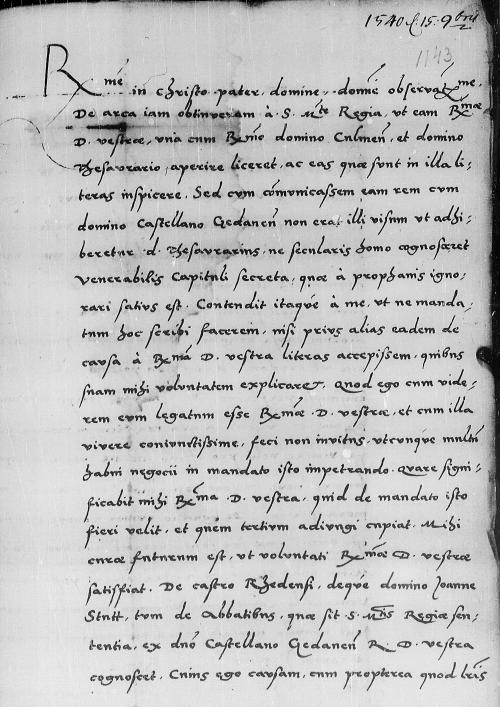 1540 d. 15. 9bris
1143
Rme in christo pater, domine, domine observatme.
De arca iam obtinueram à S. Mte Regia, ut eam Rmae
D. vestrae, una cum Rmo domino Culmen, et domino
Thesaurario, aperire liceret, ac eas quae sunt in illa li-
teras inspicere. Sed cum communicassem eam rem cum
domino Castellano Gedanen non erat illi visum ut adhi-
beretur d. Thesaurarius, ne secularis homo cognosceret
venerabilis Capituli secreta, quae à prophanis igno-
rari satius est. Contendit itaque à me, ut ne manda-
tum hoc scribi facerem, nisi prius alias eadem de
causa à Rma D. vestra literas accepissem, quibus
suam mihi voluntatem explicaret. Quod ego cum vide-
rem eum legatum esse Rmae. D. vestrae, et cum illa
vivere coniunctissime, feci non invitus, utcunque multum
habui negocii in mandato isto impetrando. Quare signi-
ficabit mihi Rma. D. vestra, quid de mandato isto
fieri velit, et quem tertium adiungi cupiat. Mihi
curae futurum est, ut voluntati Rmae D. vestrae
satisfiat. De castro Rhedensi, deque domino Joanne
Stutt, tum de Abbatibus, quae sit S. Mtis Regiae sen-
tentia, ex dno Castellano Gedanen R. D. vestra
cognoscet. Cuius ego causam, cum propterea quod lris